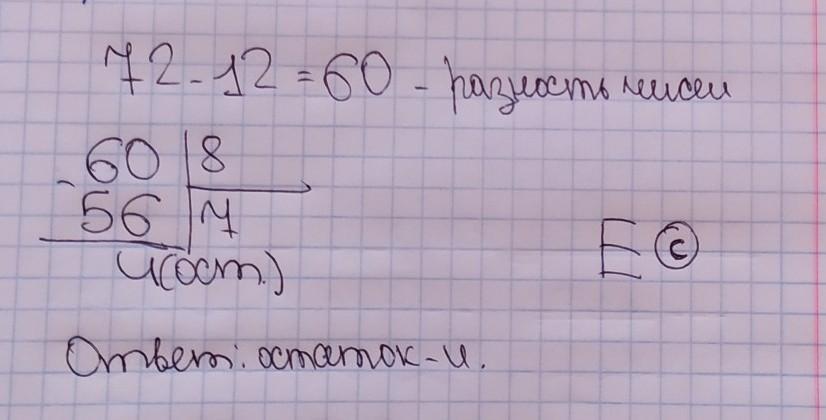 72-12=60 - разность чисел
-60|8
56|7
4(ост.)
E ©
Ответ: остаток-4.